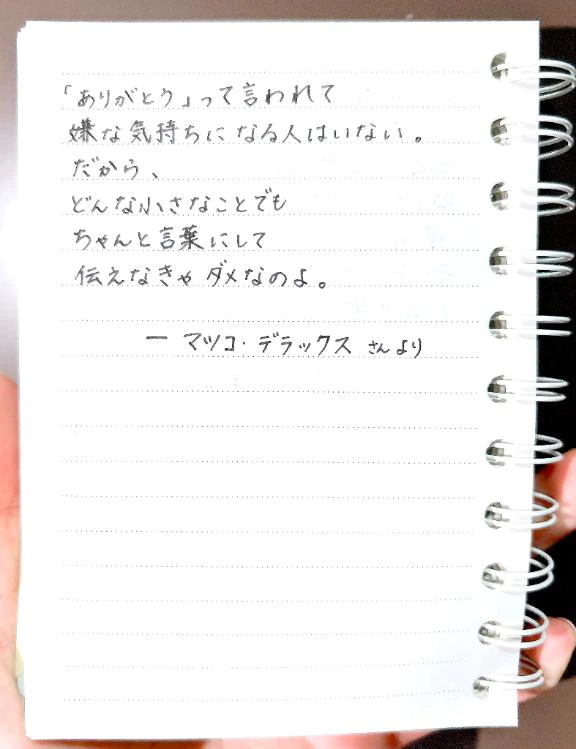 「ありがとう」って言われて
嫌な気持ちになる人はいない。
だから、
どんな小さなことでも
ちゃんと言葉にして
伝えなきゃダメなのよ。
― マツコ・デラックス さんより